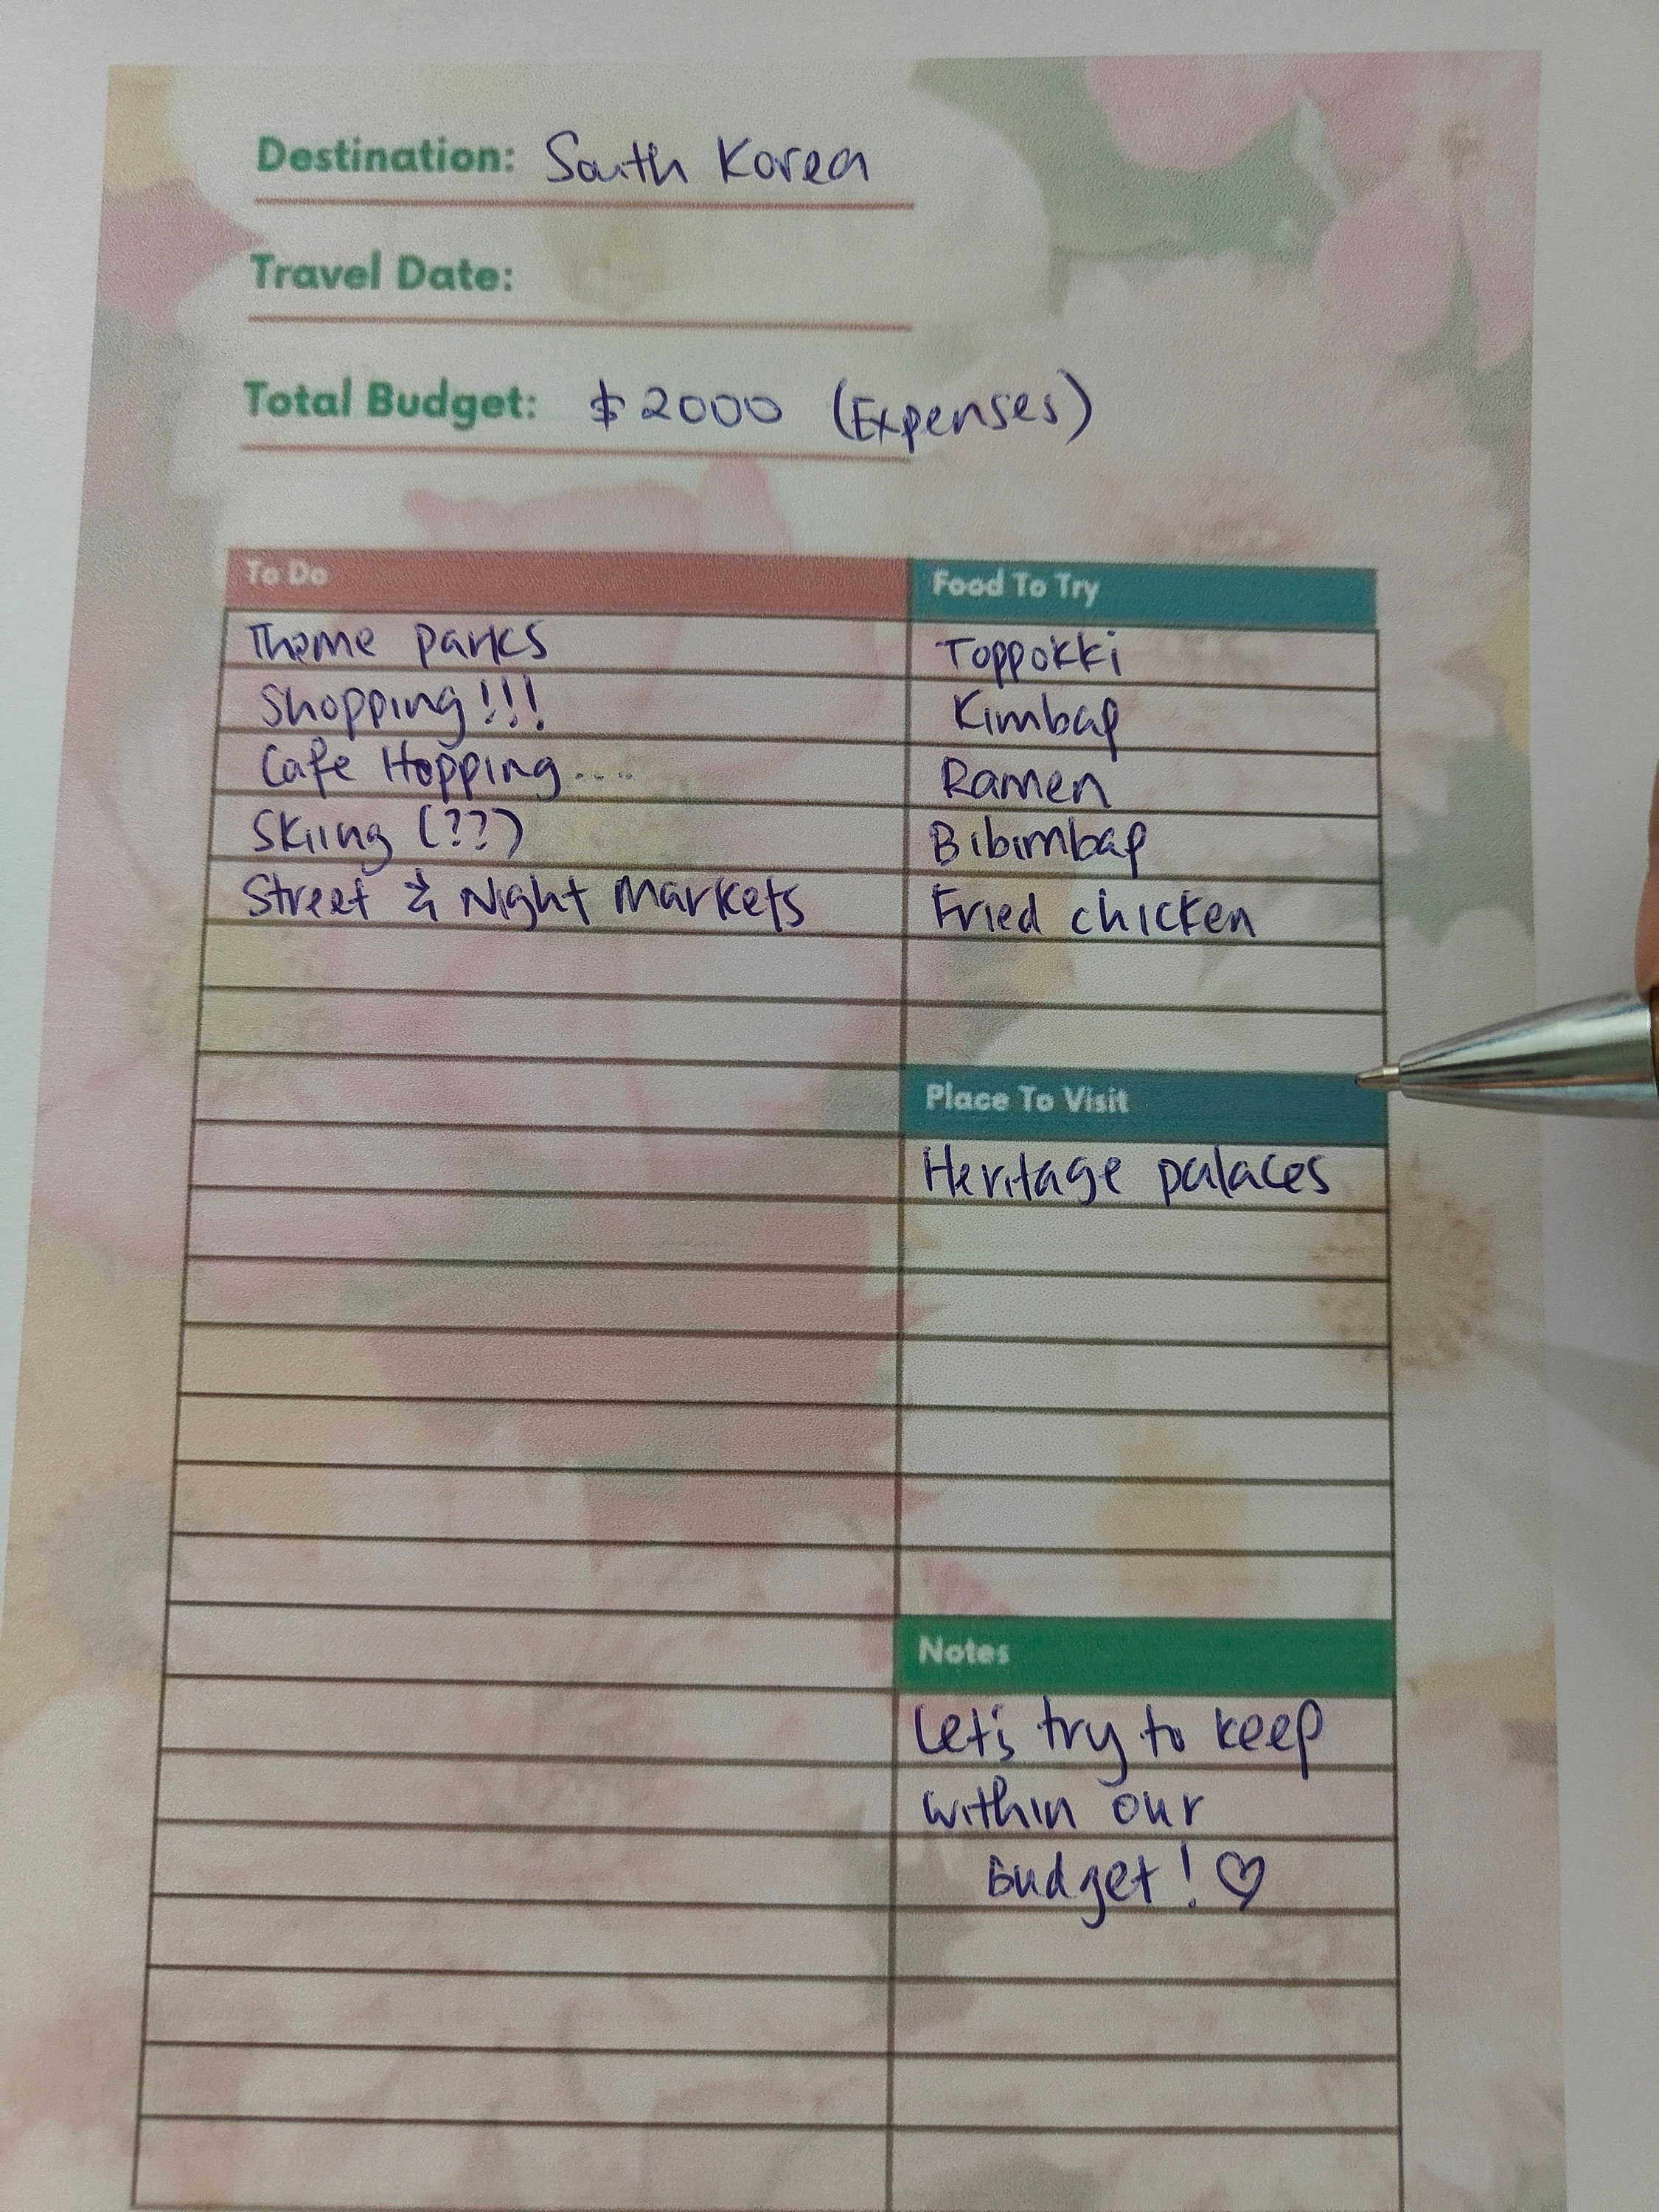 Destination: South Korea
Travel Date:
Total Budget: $2000 (Expenses)
To Do
Theme parks
Shopping!!!
Cafe Hopping....
Skiing (??)
Street & Night Markets
Food To Try
Toppokki
Kimbap
Ramen
Bibimbap
Fried chicken
Place To Visit
Heritage palaces
Notes
Let's try to keep
within our
Budget! ♡